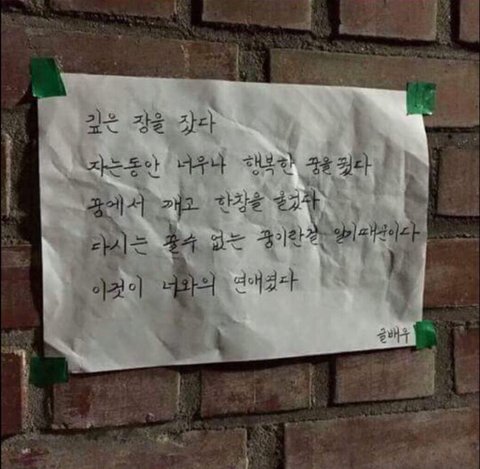 깊은 잠을 잤다
자는동안 너무나 행복한 꿈을 꿨다
꿈에서 깨고 한참을 울었다
다시는 꿀수 없는 꿈이란걸 알기때문이다
이것이 너와의 연애였다
글배우